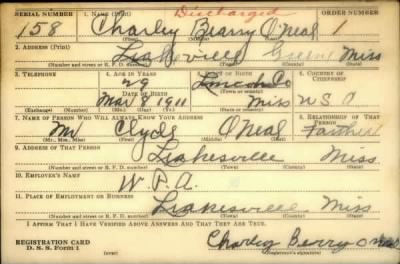 SERIAL NUMBER 1. NAME (Print) Discharged ORDER NUMBER
158 Charley Bearry O'Neal 1
(First) (Middle) (Last)
2. ADDRESS (Print)
Leakesville Greene Miss
(Number and street or R. F. D. number) (Town) (County) (State)
3. TELEPHONE 4. AGE IN YEARS 5. PLACE OF BIRTH 6. COUNTRY OF CITIZENSHIP
29 Lincoln Co
DATE OF BIRTH (Town or county)
Mar 9 1911 Miss U.S.A
(Exchange) (Number) (Mo.) (Day) (Yr.) (State or country)
7. NAME OF PERSON WHO WILL ALWAYS KNOW YOUR ADDRESS 8. RELATIONSHIP OF THAT PERSON
Mr Clyde O'Neal Farther
(Mr., Mrs., Miss) (First) (Middle) (Last)
9. ADDRESS OF THAT PERSON
Leakesville Miss
(Number and street or R. F. D. number) (Town) (County) (State)
10. EMPLOYER'S NAME
W.P.A.
11. PLACE OF EMPLOYMENT OR BUSINESS
Leakesville Miss
(Number and street or R. F. D. number) (Town) (County) (State)
I AFFIRM THAT I HAVE VERIFIED ABOVE ANSWERS AND THAT THEY ARE TRUE.
REGISTRATION CARD Charley Berry O neal
D. S. S. Form 1 (over) (Registrant's signature)